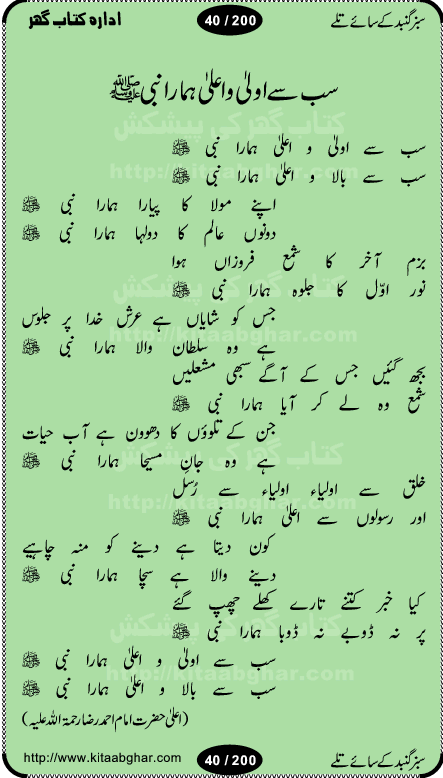 سبز گنبد کے سائے تلے 40 / 200 ادارہ کتاب گھر
سب سے اولیٰ و اعلیٰ ہمارا نبی ﷺ
کتاب گھر کی پیشکش
سب سے اولیٰ و اعلیٰ ہمارا نبی ﷺ
http://kitaabghar.com
سب سے بالا و اعلیٰ ہمارا نبی ﷺ
اپنے مولا کا پیارا ہمارا نبی ﷺ
دونوں عالم کا دولہا ہمارا نبی ﷺ
بزم آخر کا شمع فروزاں ہوا
کتاب گھر کی پیشکش
نور اوّل کا جلوہ ہمارا نبی ﷺ
جس کو شایاں ہے عرش خدا پر جلوس
http://kitaabghar.com
ہے وہ سلطان والا ہمارا نبی ﷺ
بجھ گئیں جس کے آگے سبھی مشعلیں
شمع وہ لے کر آیا ہمارا نبی ﷺ
جن کے تلوؤں کا دھوون ہے آب حیات
کتاب گھر کی پیشکش
ہے وہ جانِ مسیحا ہمارا نبی ﷺ
خلق سے اولیاء اولیاء سے رُسل
http://kitaabghar.com
اور رسولوں سے اعلیٰ ہمارا نبی ﷺ
کون دیتا ہے دینے کو منہ چاہیے
دینے والا ہے سچا ہمارا نبی ﷺ
کیا خبر کتنے تارے کھلے چھپ گئے
کتاب گھر کی پیشکش
پر نہ ڈوبے نہ ڈوبا ہمارا نبی ﷺ
سب سے اولیٰ و اعلیٰ ہمارا نبی ﷺ
http://kitaabghar.com
سب سے بالا و اعلیٰ ہمارا نبی ﷺ
(اعلیٰ حضرت امام احمد رضا رحمۃ اللہ علیہ)
سبز گنبد کے سائے تلے 40 / 200 http://www.kitaabghar.com